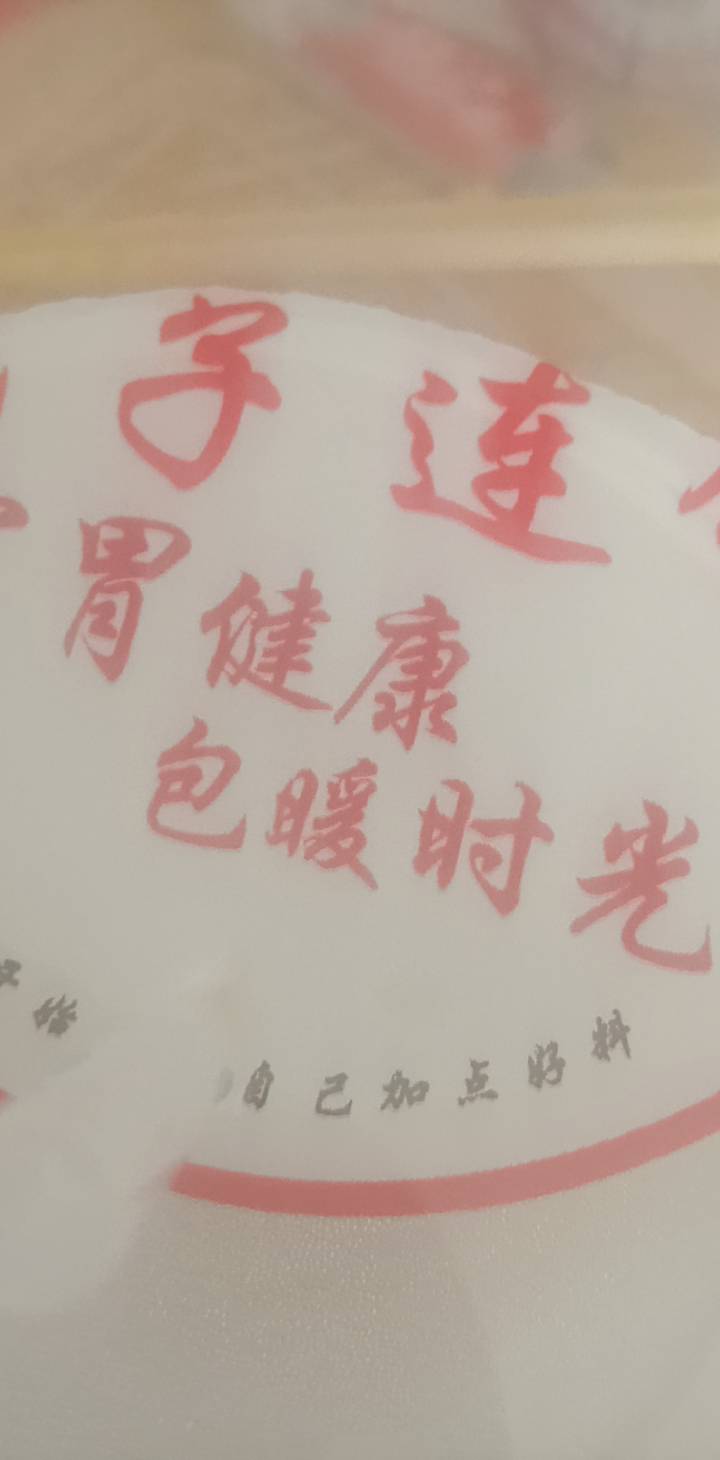 字连
胃健康
包暖时光
给自己加点好料